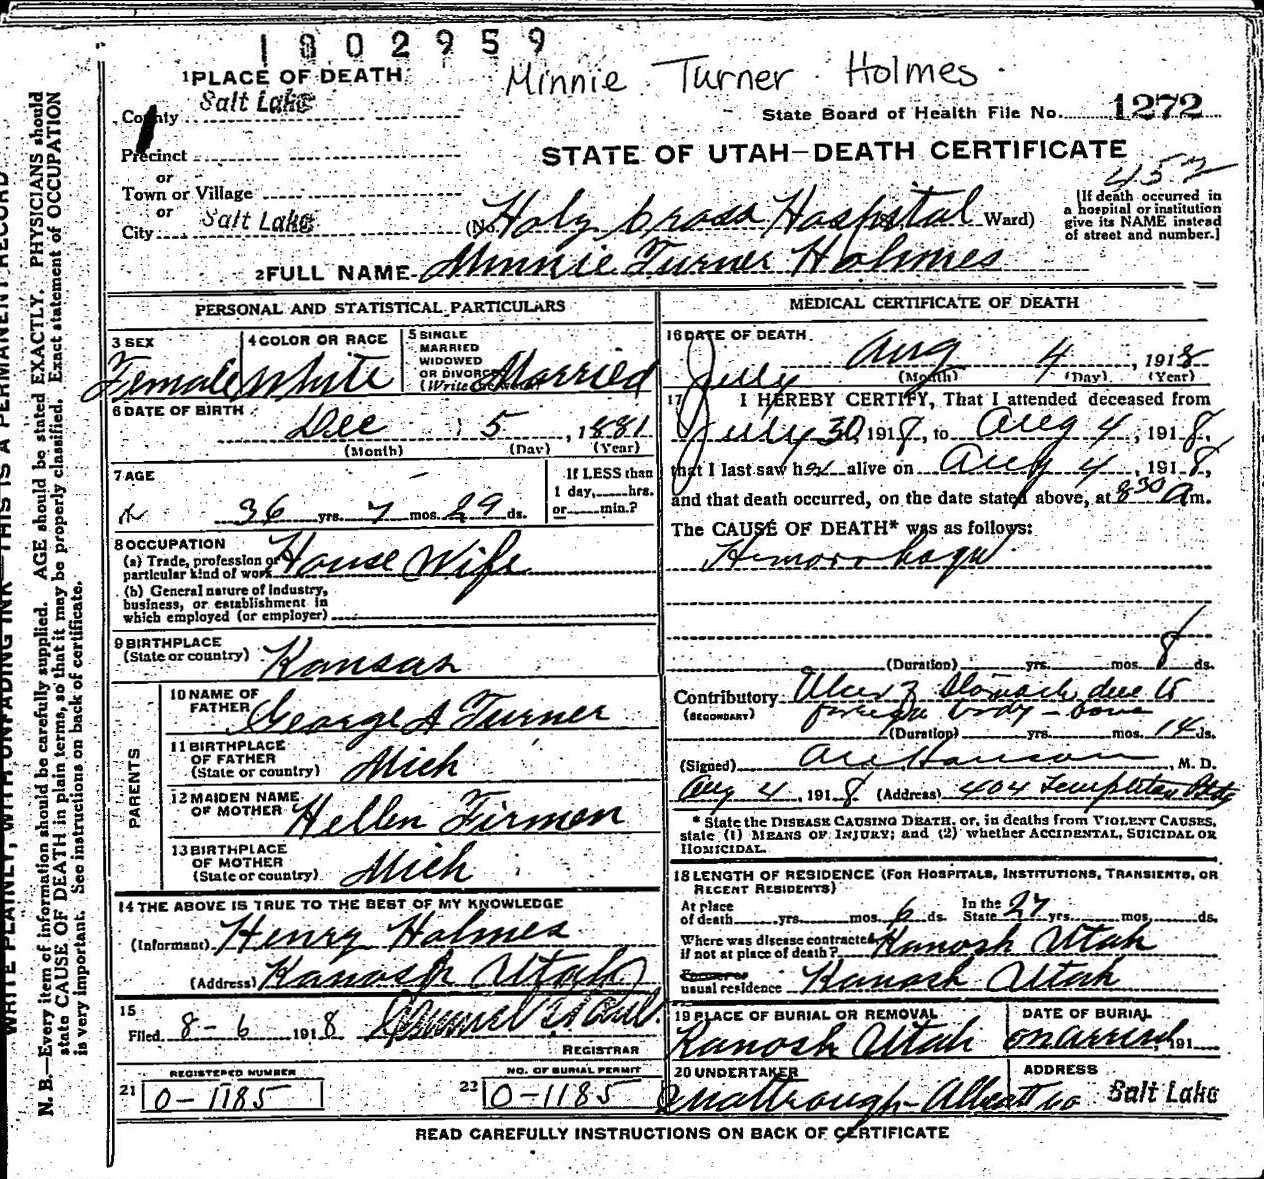 1802959
Minnie Turner Holmes
1 PLACE OF DEATH
County Salt Lake
State Board of Health File No. 1272
Precinct
STATE OF UTAH—DEATH CERTIFICATE
or
Town or Village
or
City Salt Lake
(No. Holy Cross Hospital Ward)
[If death occurred in
a hospital or institution
give its NAME instead
of street and number.]
2 FULL NAME Minnie Turner Holmes
PERSONAL AND STATISTICAL PARTICULARS
3 SEX
Female
4 COLOR OR RACE
White
5 SINGLE
MARRIED
WIDOWED
OR DIVORCED
(Write the word)
Married
6 DATE OF BIRTH
Dec 5, 1881
(Month) (Day) (Year)
7 AGE
36 yrs. 7 mos. 29 ds.
If LESS than
1 day, hrs.
or min.?
8 OCCUPATION
(a) Trade, profession or
particular kind of work House Wife
(b) General nature of industry,
business, or establishment in
which employed (or employer)
9 BIRTHPLACE
(State or country) Kansas
PARENTS
10 NAME OF
FATHER George A Turner
11 BIRTHPLACE
OF FATHER
(State or country) Mich
12 MAIDEN NAME
OF MOTHER Hellen Firmon
13 BIRTHPLACE
OF MOTHER
(State or country) Mich
14 THE ABOVE IS TRUE TO THE BEST OF MY KNOWLEDGE
(Informant) Henry Holmes
(Address) Kanosh Utah
15
Filed 8-6 1918
REGISTRAR
REGISTERED NUMBER
21 0-1185
NO. OF BURIAL PERMIT
22 0-1185
MEDICAL CERTIFICATE OF DEATH
16 DATE OF DEATH
Aug 4, 1918
(Month) (Day) (Year)
July
17 I HEREBY CERTIFY, That I attended deceased from
July 30, 1918, to Aug 4, 1918,
that I last saw her alive on Aug 4, 1918,
and that death occurred, on the date stated above, at 8 30 A m.
The CAUSE OF DEATH* was as follows:
Hemorrhage
(Duration) yrs. mos. 8 ds.
Contributory Ulcer of Stomach due to
(SECONDARY) foreign body - bone
(Duration) yrs. mos. 14 ds.
(Signed) M. D.
Aug 4, 1918 (Address) 404 Templeton Bldg
* State the DISEASE CAUSING DEATH, or, in deaths from VIOLENT CAUSES,
state (1) MEANS OF INJURY; and (2) whether ACCIDENTAL, SUICIDAL OR
HOMICIDAL.
18 LENGTH OF RESIDENCE (FOR HOSPITALS, INSTITUTIONS, TRANSIENTS, OR
RECENT RESIDENTS)
At place
of death yrs. mos. 6 ds.
In the
State 27 yrs. mos. ds.
Where was disease contracted
if not at place of death? Kanosh Utah
Former or
usual residence Kanosh Utah
19 PLACE OF BURIAL OR REMOVAL
Kanosh Utah
DATE OF BURIAL
on arrival, 191
20 UNDERTAKER
ADDRESS
Salt Lake
READ CAREFULLY INSTRUCTIONS ON BACK OF CERTIFICATE
WRITE PLAINLY, WITH UNFADING INK—THIS IS A PERMANENT RECORD
N. B.—Every item of information should be carefully supplied. AGE should be stated EXACTLY. PHYSICIANS should
state CAUSE OF DEATH in plain terms, so that it may be properly classified. Exact statement of OCCUPATION
is very important. See instructions on back of certificate.